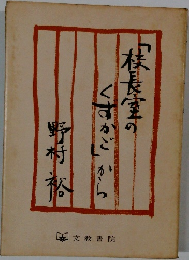 「校長室の
くずかご」から
野村 裕
文教書院